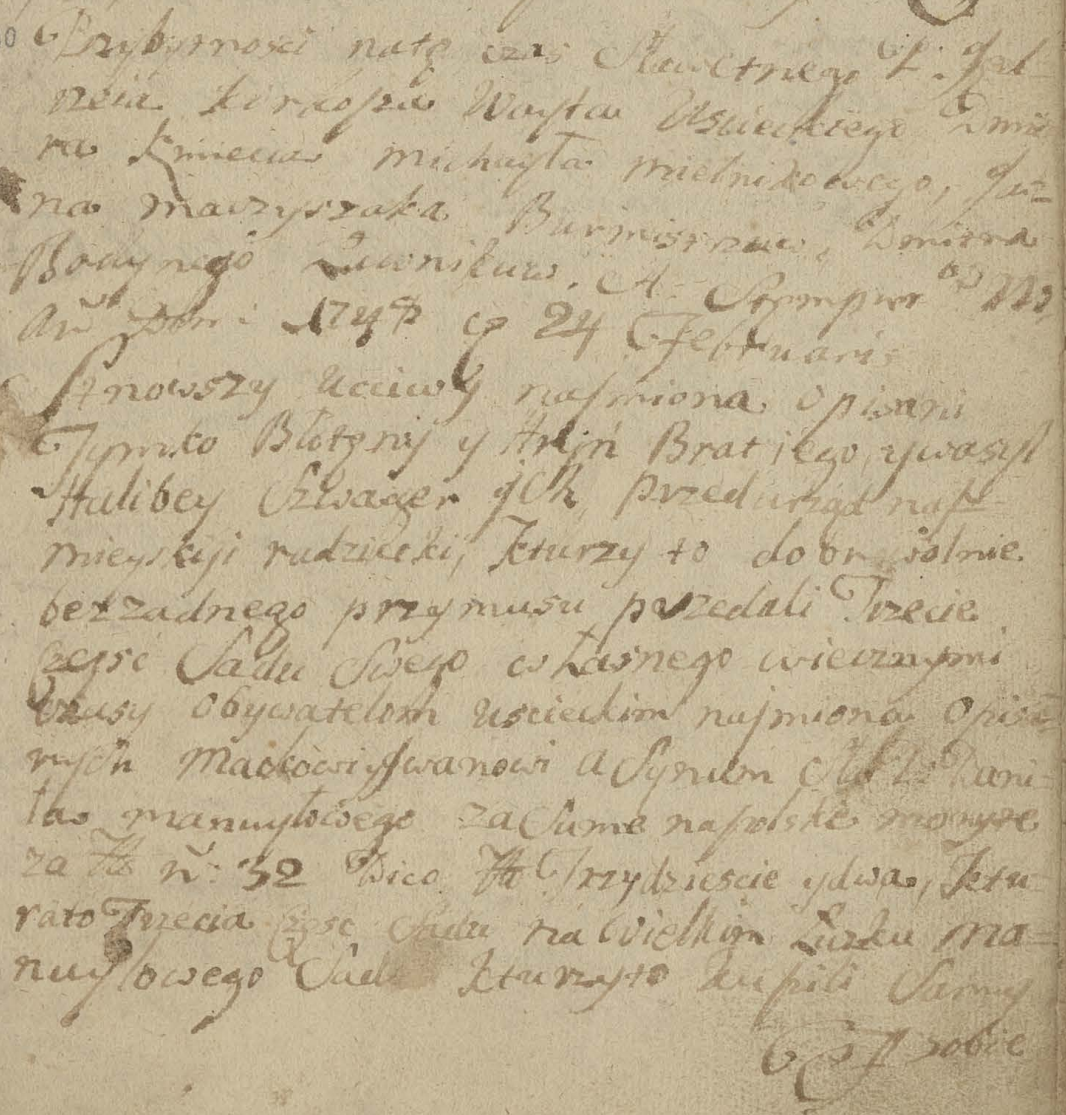 Przybytności natę czas Sławetnego P. Jed-
neia kirkosza Woyta Uscieckiego Dmit
ra kmiecia michayła mielnikowego, Jur=
na maczyszaka Burmisrzuw, Dmitra
Bodynego Ławnikuw. A: Stempur
An Dom: 1748 24 Februaris
Stnowszy Uciwy najmiona opisani
Tymko Błotęny y Brat jego, y wasyl
Halibey Szwager ych, przedurząd nasz
mieyskiji radziecki, kturzy to dobrowolnie
bezzadnego przymusu przedali Trzecie
częsc Sadu Swego własnego wiecznymi
czasy obywatelom uscieckim najmiona opisa=
nych Iwanowi a Synum Dani-
ła manuyłowego za Sume napolske monyte
za Zł n: 32 Dico Zł Trzydziescie ydwa, ktu-
rato Trzecia częsc Sadu na wielkim Łuzku ma=
nuyłowego Sadu kturzyto kupili Samy
sobie